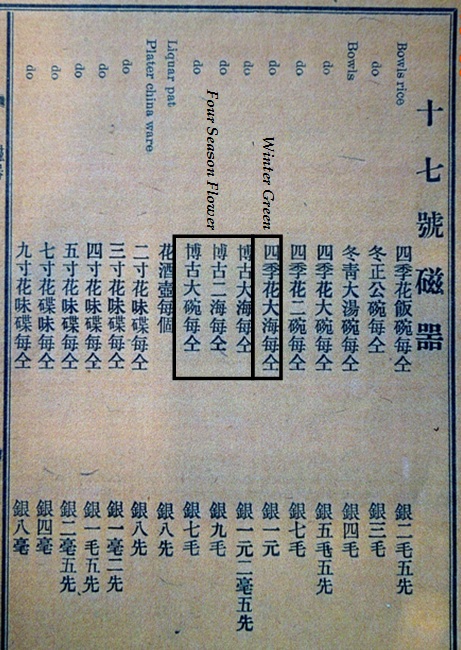 十七號磁器
Bowls rice 四季花飯碗每仝 銀二毛五先
do 冬正公碗每仝 銀三毛
Bowls 冬青大湯碗每仝 銀四毛
do 四季花大碗每仝 銀五毛五先
do 四季花二碗每仝 銀七毛
Winter Green
do 四季花大海每仝 銀一元
do 博古大海每仝 銀一元二毫五先
Four Season Flower
do 博古二海每仝 銀九毛
do 博古大碗每仝 銀七毛
Liquar pat 花酒壺每個 銀八先
Plater china ware 二寸花味碟每仝 銀八先
do 三寸花味碟每仝 銀一毫二先
do 四寸花味碟每仝 銀一毛五先
do 五寸花味碟每仝 銀二毫五先
do 七寸花碟味每仝 銀四毫
do 九寸花味碟每仝 銀八毫